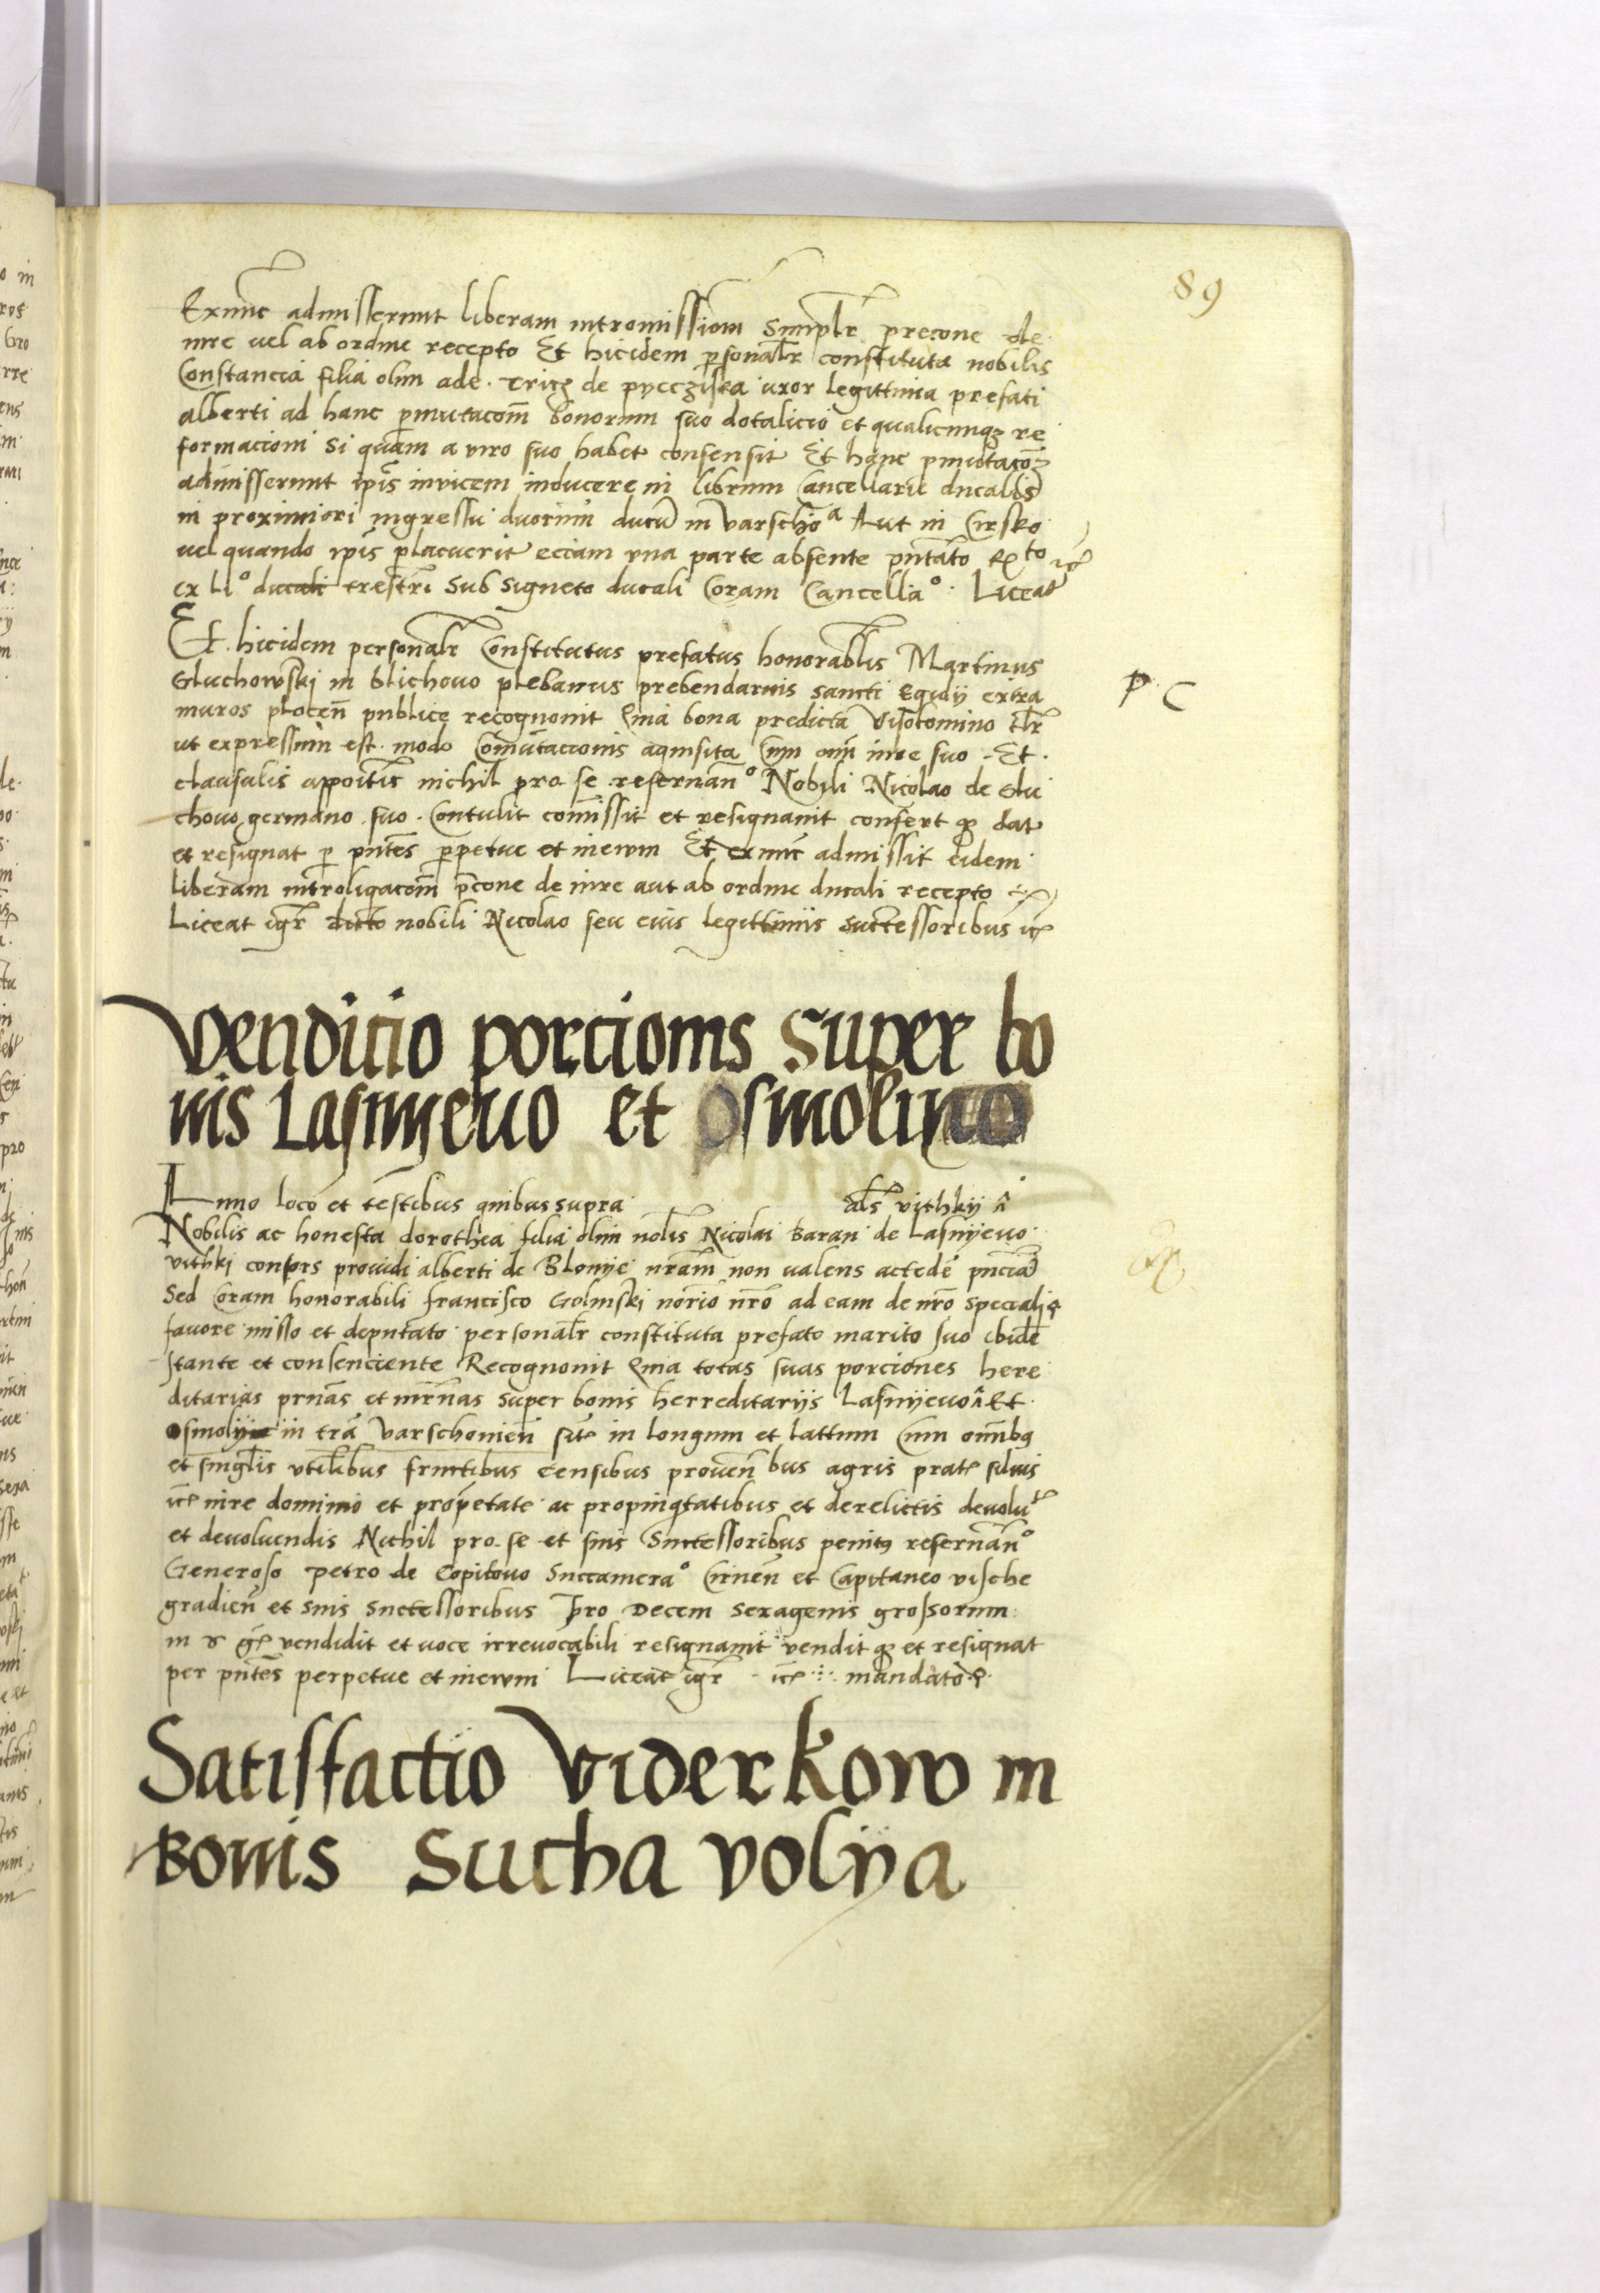 89
Exnunc admisserunt liberam intromissiom Simplr precone de
iure uel ab ordine recepto Et hicidem psonalr constituta nobilis
Constancia filia olim ade de uxor legittima prefati
alberti ad hanc pmutacom bonorum suo dotalicio et qualicunqz re
formacioni Si quam a viro suo habet consensit Et hanc pmutacoz
admisserunt ipis invicem inducere in librum Cancellarie ducalis
in proximiori ingressu duorum ducu in varscho a Aut in Cirsko
uel quando ipis placuerit eciam vna parte absente pntato
ex li o ducali trestri Sub Signeto ducali Coram Cancella o Liceat
Et hicidem personalr Constitutus prefatus honorablis Martinus
Gluchowski in blichouo plebanus prebendarius sancti Egidij extra
muros plocen publice recognouit Quia bona predicta
ut expressum est modo Comutacionis aquisita Cum oim iure suo Et
clausulis appoitis nichil pro se reseruan o Nobili Nicolao de Glu
chouo germano suo Contulit comissit et resignauit confert qz dat
et resignat p pntes ppetue et in ewm Et exnunc admissit eidem
liberam introligacom pcone de iure aut ab ordine ducali recepto
Liceat igr dicto nobili Nicolao seu eius legittimis Successoribus
P C
Vendicio porcionis Super bo
nis Lasnyeuo et Osmolino
Anno loco et testibus quibus supra als vithky
Nobilis ac honesta dorothea filia olim nolis Nicolai Baran de Lasnyeuo
vithki consors prouidi alberti de Blonye nram non ualens accede pnciam
Sed Coram honorabili francisco Golinski norio nro ad eam de nro speciali
fauore misso et deputato personalr constituta prefato marito suo ibide
stante et consenciente Recognouit Quia totas suas porciones here
ditarias prnas et mrnas Super bonis herreditarijs Lasnyeuo Et
in tra varschouien sit in longum et lattum Cum omnibq
et singlis vtilibus fructibus censibus prouen bus agris prat siluis
iure dominio et propetate ac propinqtatibus et derelictis deuolu
et deuoluendis Nichil pro se et suis Successoribus penitq reseruan o
Generoso petro de Copitouo Succamera o Cirnen et Capitaneo vische
gradien et suis successoribus Pro Decem Sexagenis grossorum
in vendidit et uoce irreuocabili resignauit vendit qz et resignat
per pntes perpetue et in ewm Liceat igr mandato
Satisfactio Viderkow in
Bonis Sucha volya